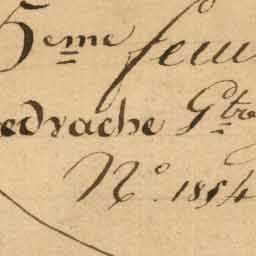 5eme feui
edrache Gtro
No. 1854